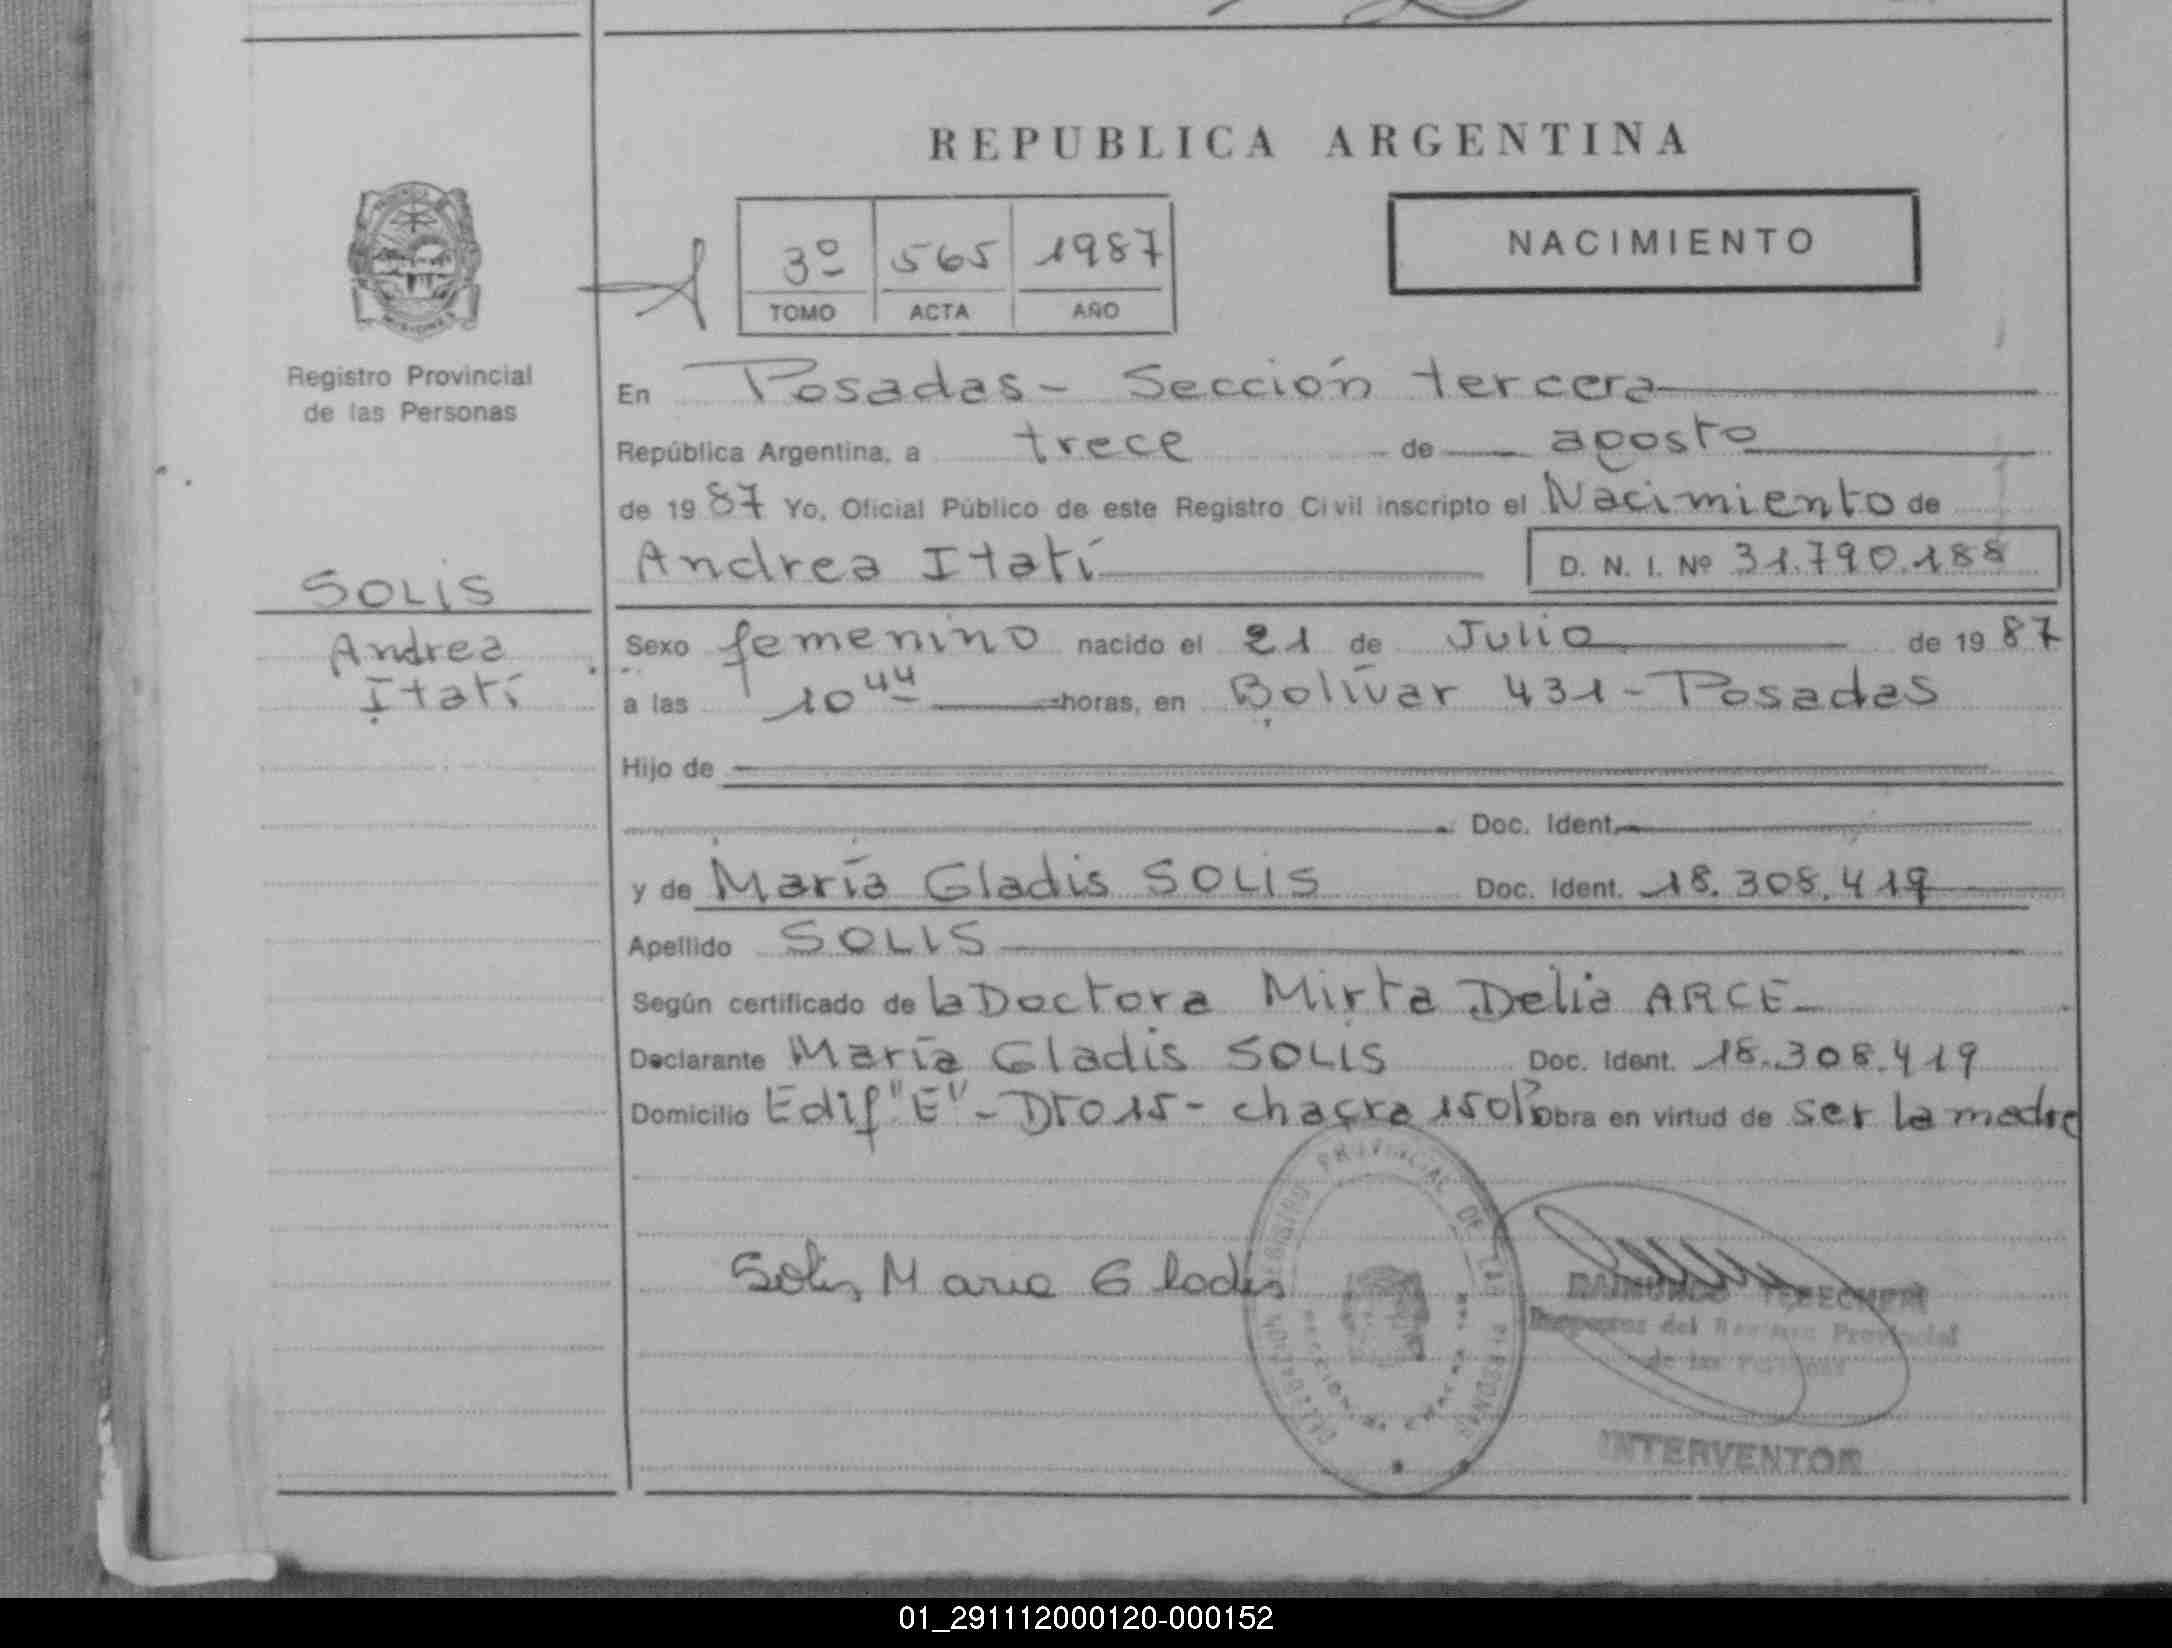 REPUBLICA ARGENTINA
NACIMIENTO
3º 565 1987
TOMO ACTA AÑO
MISIONES
Registro Provincial
de las Personas
SOLIS
Andrea
Itatí
En Posadas - Sección tercera
República Argentina, a trece de agosto
de 1987 Yo, Oficial Público de este Registro Civil inscripto el Nacimiento de
Andrea Itatí D. N. I. Nº 31.790.188
Sexo femenino nacido el 21 de Julio de 1987
a las 10 44 horas, en Bolívar 431 - Posadas
Hijo de
Doc. Ident.
y de María Gladis SOLIS Doc. Ident. 18.308.419
Apellido SOLIS
Según certificado de la Doctora Mirta Delia ARCE
Declarante María Gladis SOLIS Doc. Ident. 18.308.419
Domicilio Edif "E" - Dto 15 - chacra 150 Obra en virtud de ser la madre
Solis Maria Gladis
REGISTRO PROVINCIAL DE LAS PERSONAS
RAIMUNDO
del Registro Provincial
de las Personas
INTERVENTOR
01_291112000120-000152